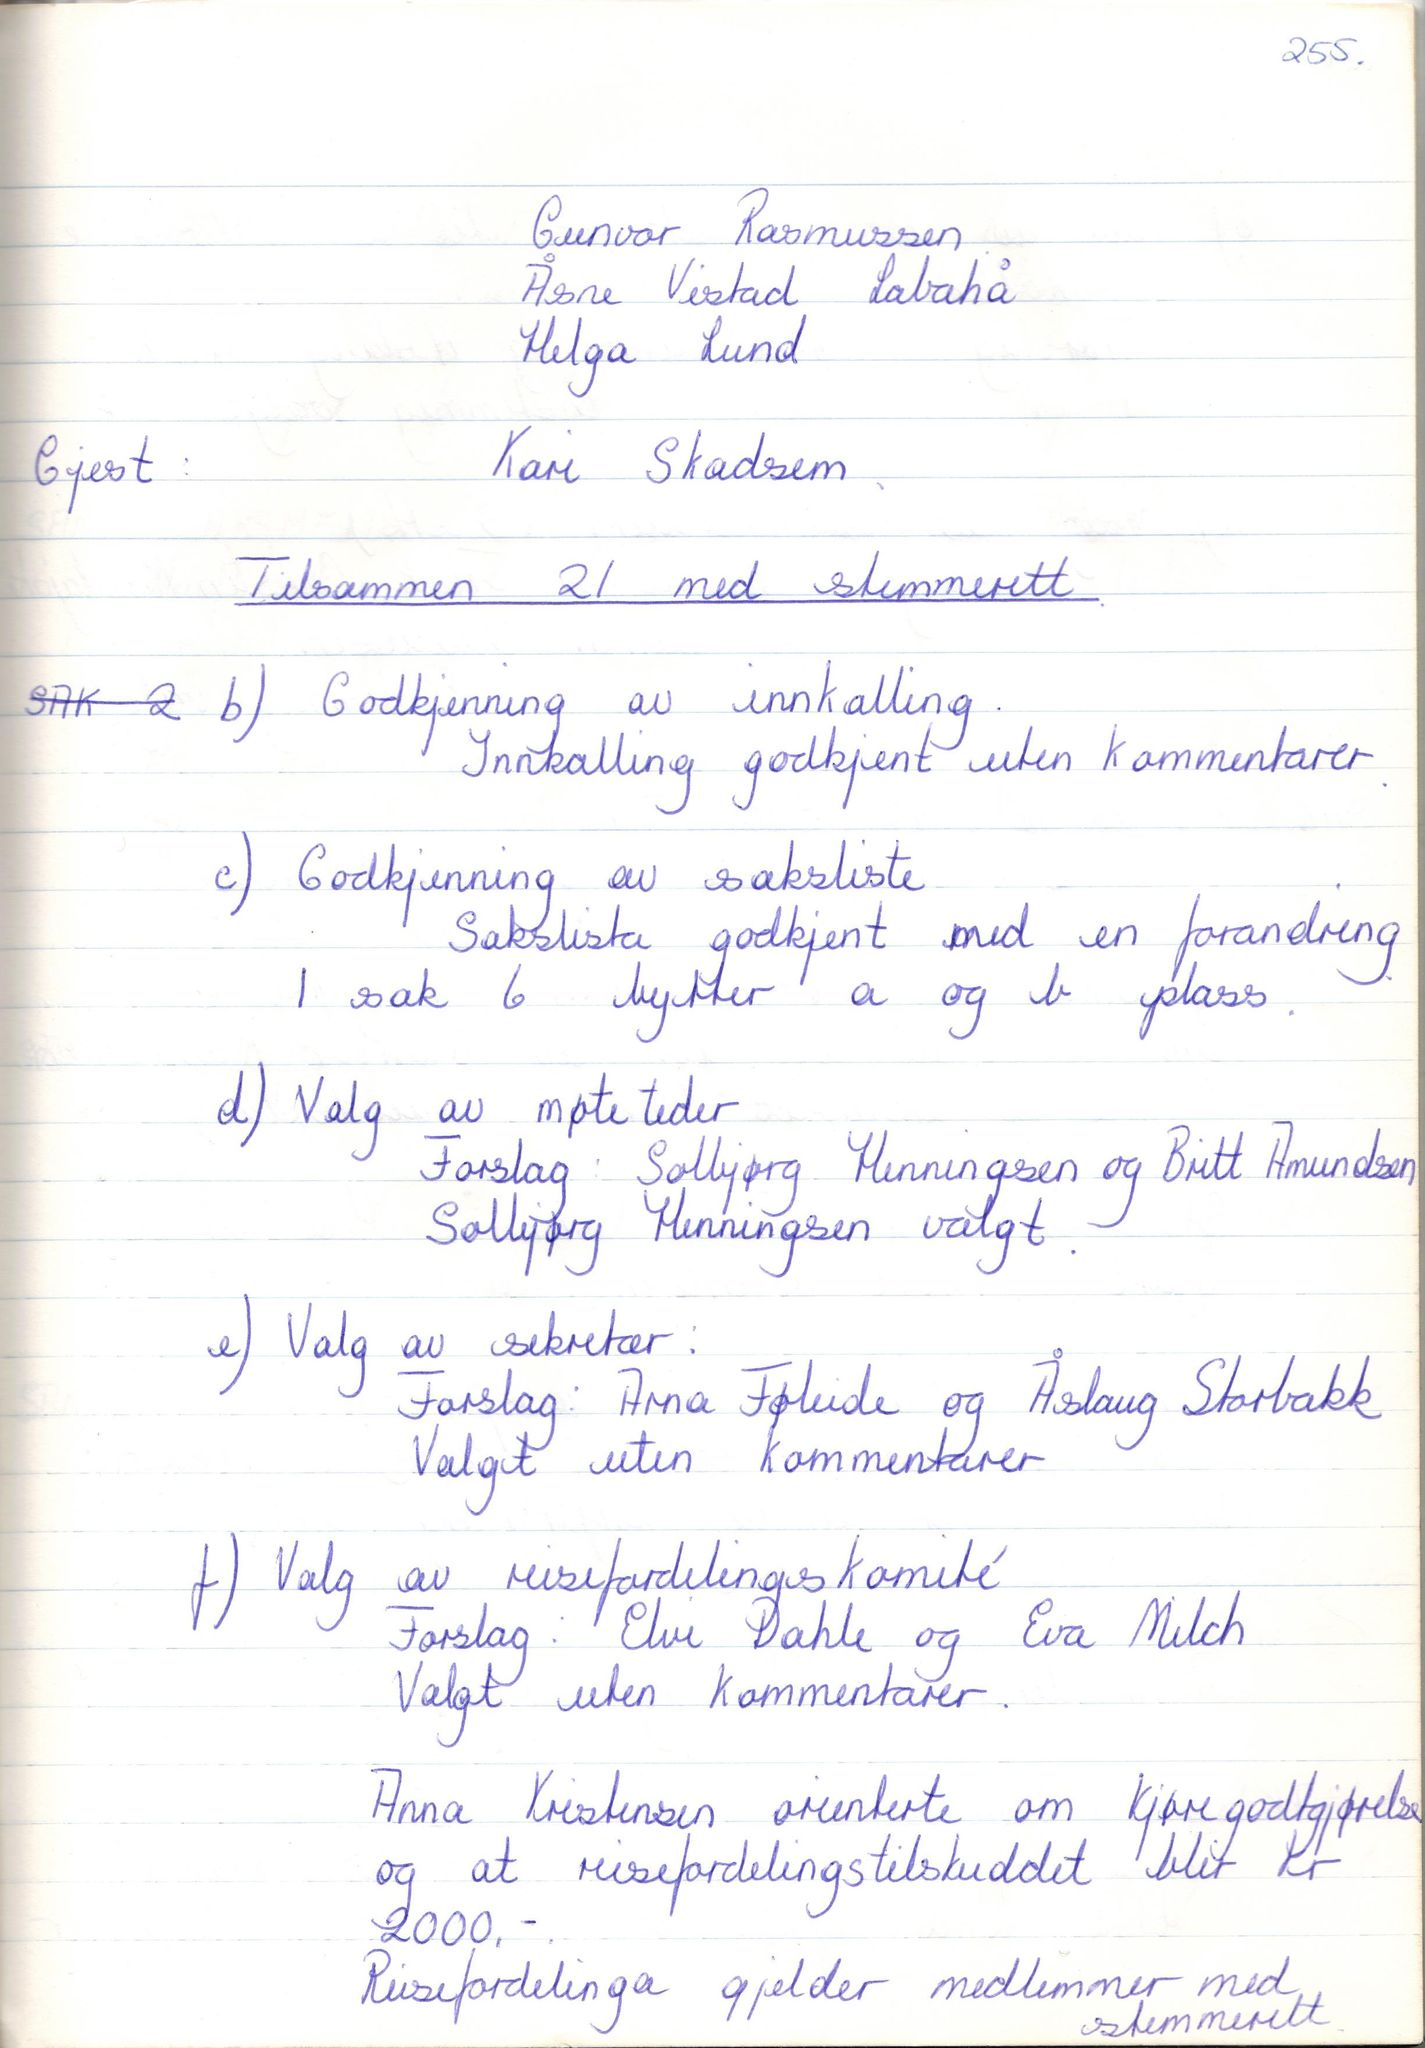 255.
Gunvor Rasmussen
Åsne Vistad Labahå
Helga Lund
Gjest: Kari Skadsem.
Tilsammen 21 med stemmerett.
SAK 2 b) Godkjenning av innkalling.
Innkalling godkjent uten kommentarer.
c) Godkjenning av saksliste
Sakslista godkjent med en forandring.
I sak 6 bytter a og b plass.
d) Valg av møteleder
Forslag: Solbjørg Henningsen og Britt Amundsen
Solbjørg Henningsen valgt.
e) Valg av sekretær:
Forslag: Arna Føleide og Åslaug Storbakk
Valgt uten kommentarer
f) Valg av reisefordelingskomité
Forslag: Elvi Dahle og Eva Milch
Valgt uten kommentarer.
Anna Kristensen orienterte om kjøregodtgjørelse
og at reisefordelingstilskuddet blir kr
2000,-.
Reisefordelinga gjelder medlemmer med
stemmerett.